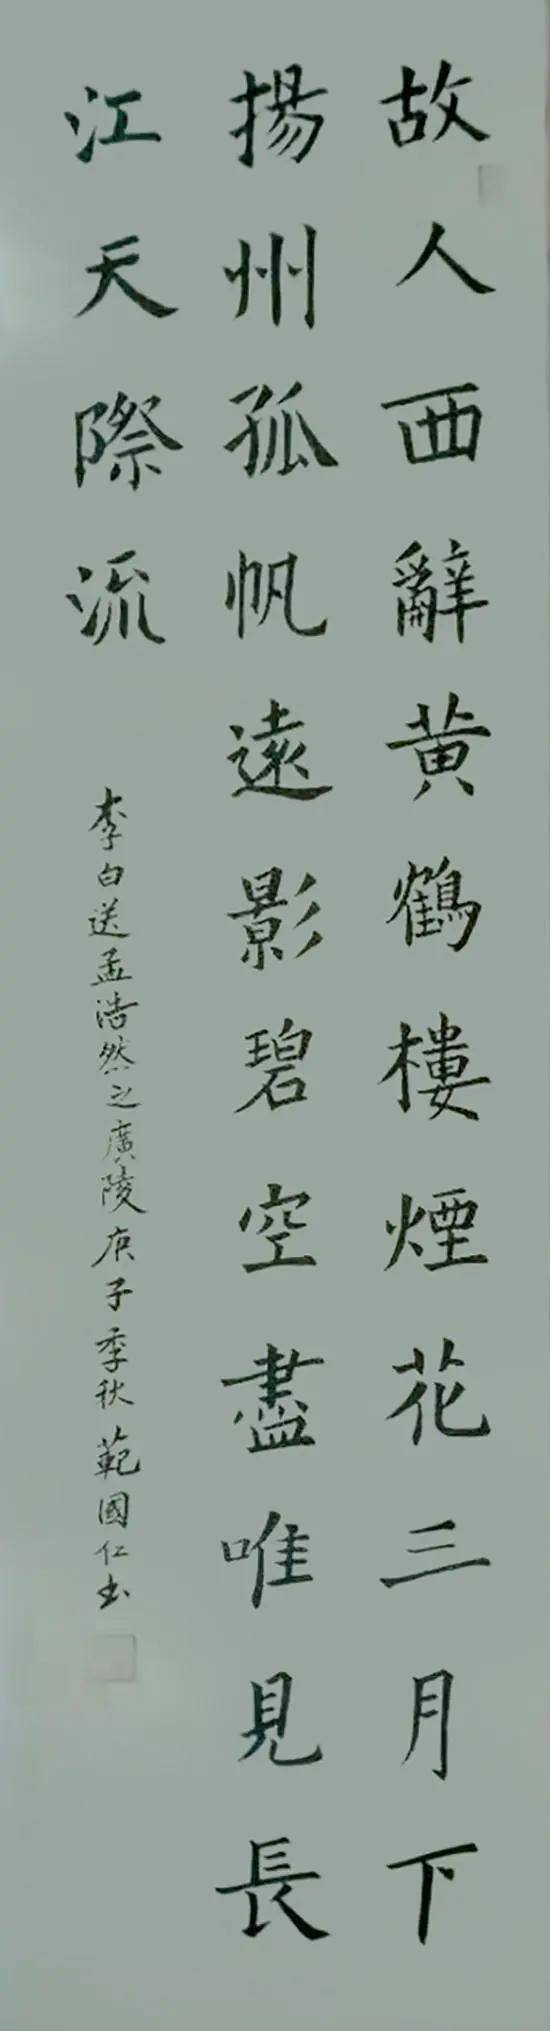 故人西辭黄鶴樓煙花三月下
揚州孤帆遠影碧空盡唯見長
江天際流
李白送孟浩然之廣陵庚子季秋範國仁书